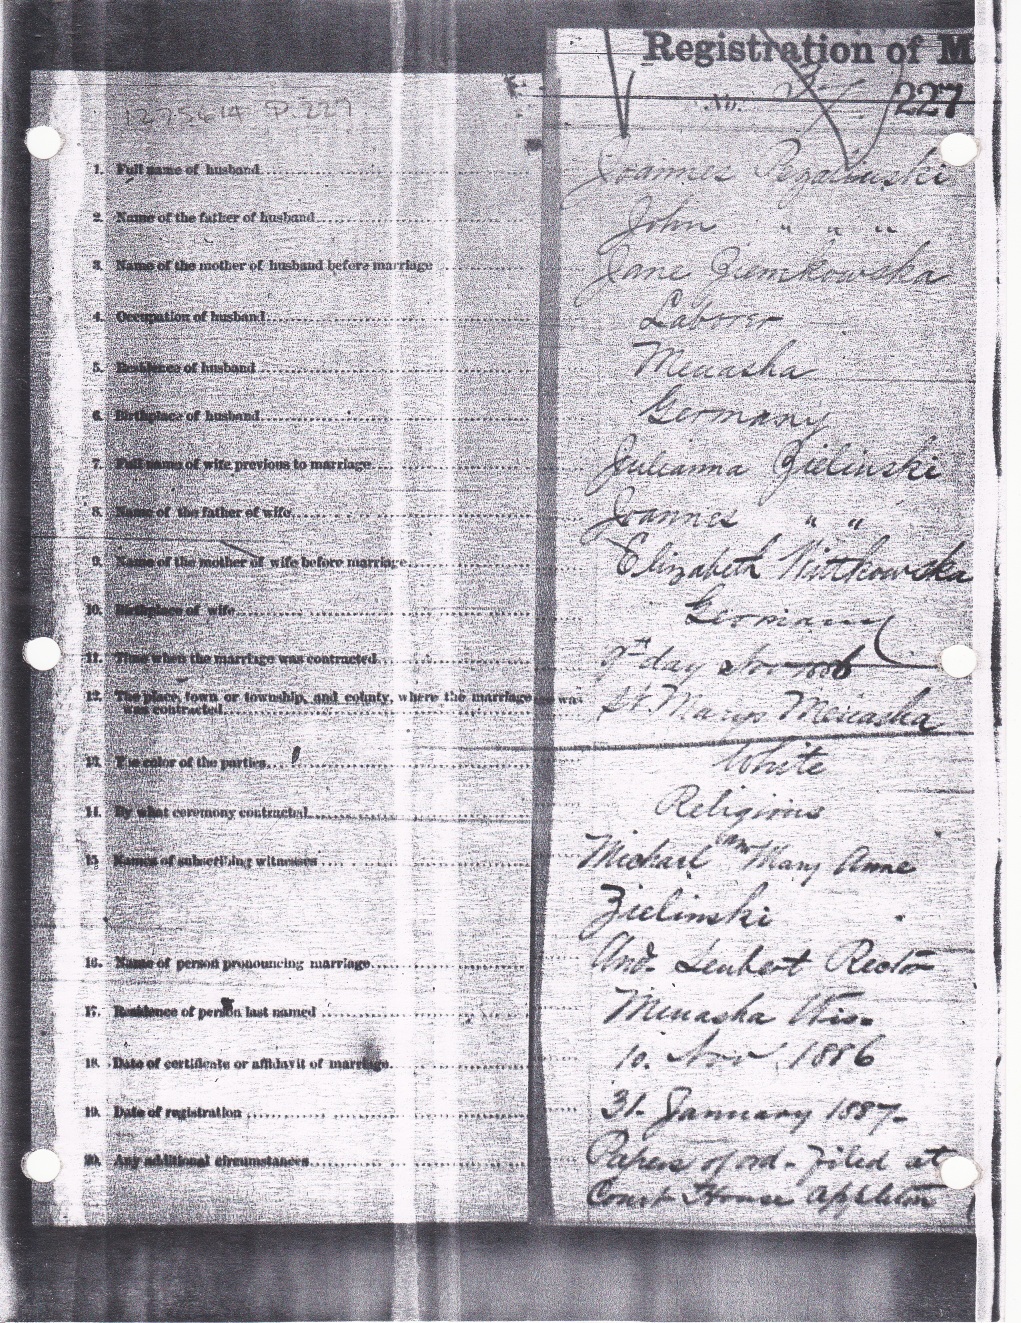 Registration of M
1275614 P. 227
No. 227
1. Full name of husband Joannes
2. Name of the father of husband John " " "
3. Name of the mother of husband before marriage Jane Ziemkowska
4. Occupation of husband Laborer
5. Residence of husband Menasha
6. Birthplace of husband Germany
7. Full name of wife previous to marriage Julianna Zielinski
8. Name of the father of wife Joannes " "
9. Name of the mother of wife before marriage Elizabeth Witkowska
10. Birthplace of wife Germany
11. Time when the marriage was contracted 9th day Nov
12. The place, town or township, and county, where the marriage was
was contracted St. Marys Menasha
13. The color of the parties White
14. By what ceremony contracted Religious
15 Names of subscribing witnesses Michael and Mary Anne
Zielinski
16. Name of person pronouncing marriage And. Seubert Rector
17. Residence of person last named Menasha Wis.
18. Date of certificate or affidavit of marriage 10. Nov 1886
19. Date of registration 31. January 1887.
20. Any additional circumstances Papers of ord. filed at
Court House Appleton